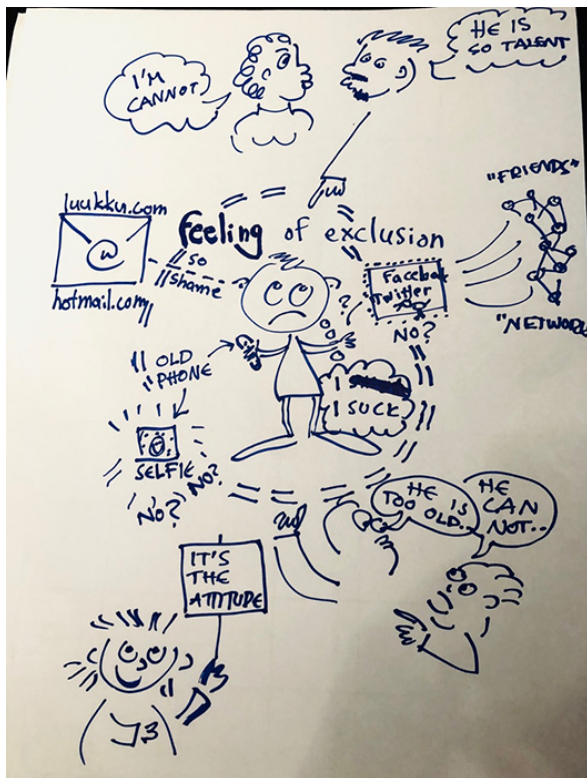 I'M
CANNOT
HE IS
SO TALENT
luukku.com
@
hotmail.com
feeling of exclusion
SO
SHAME
"FRIENDS"
"NETWORK
Facebok
Twitter
NO?
?
OLD
PHONE
I
I SUCK
SELFIE
NO?
NO?
HE IS
TOO OLD..
HE
CAN
NOT..
IT'S
THE
ATTITUDE